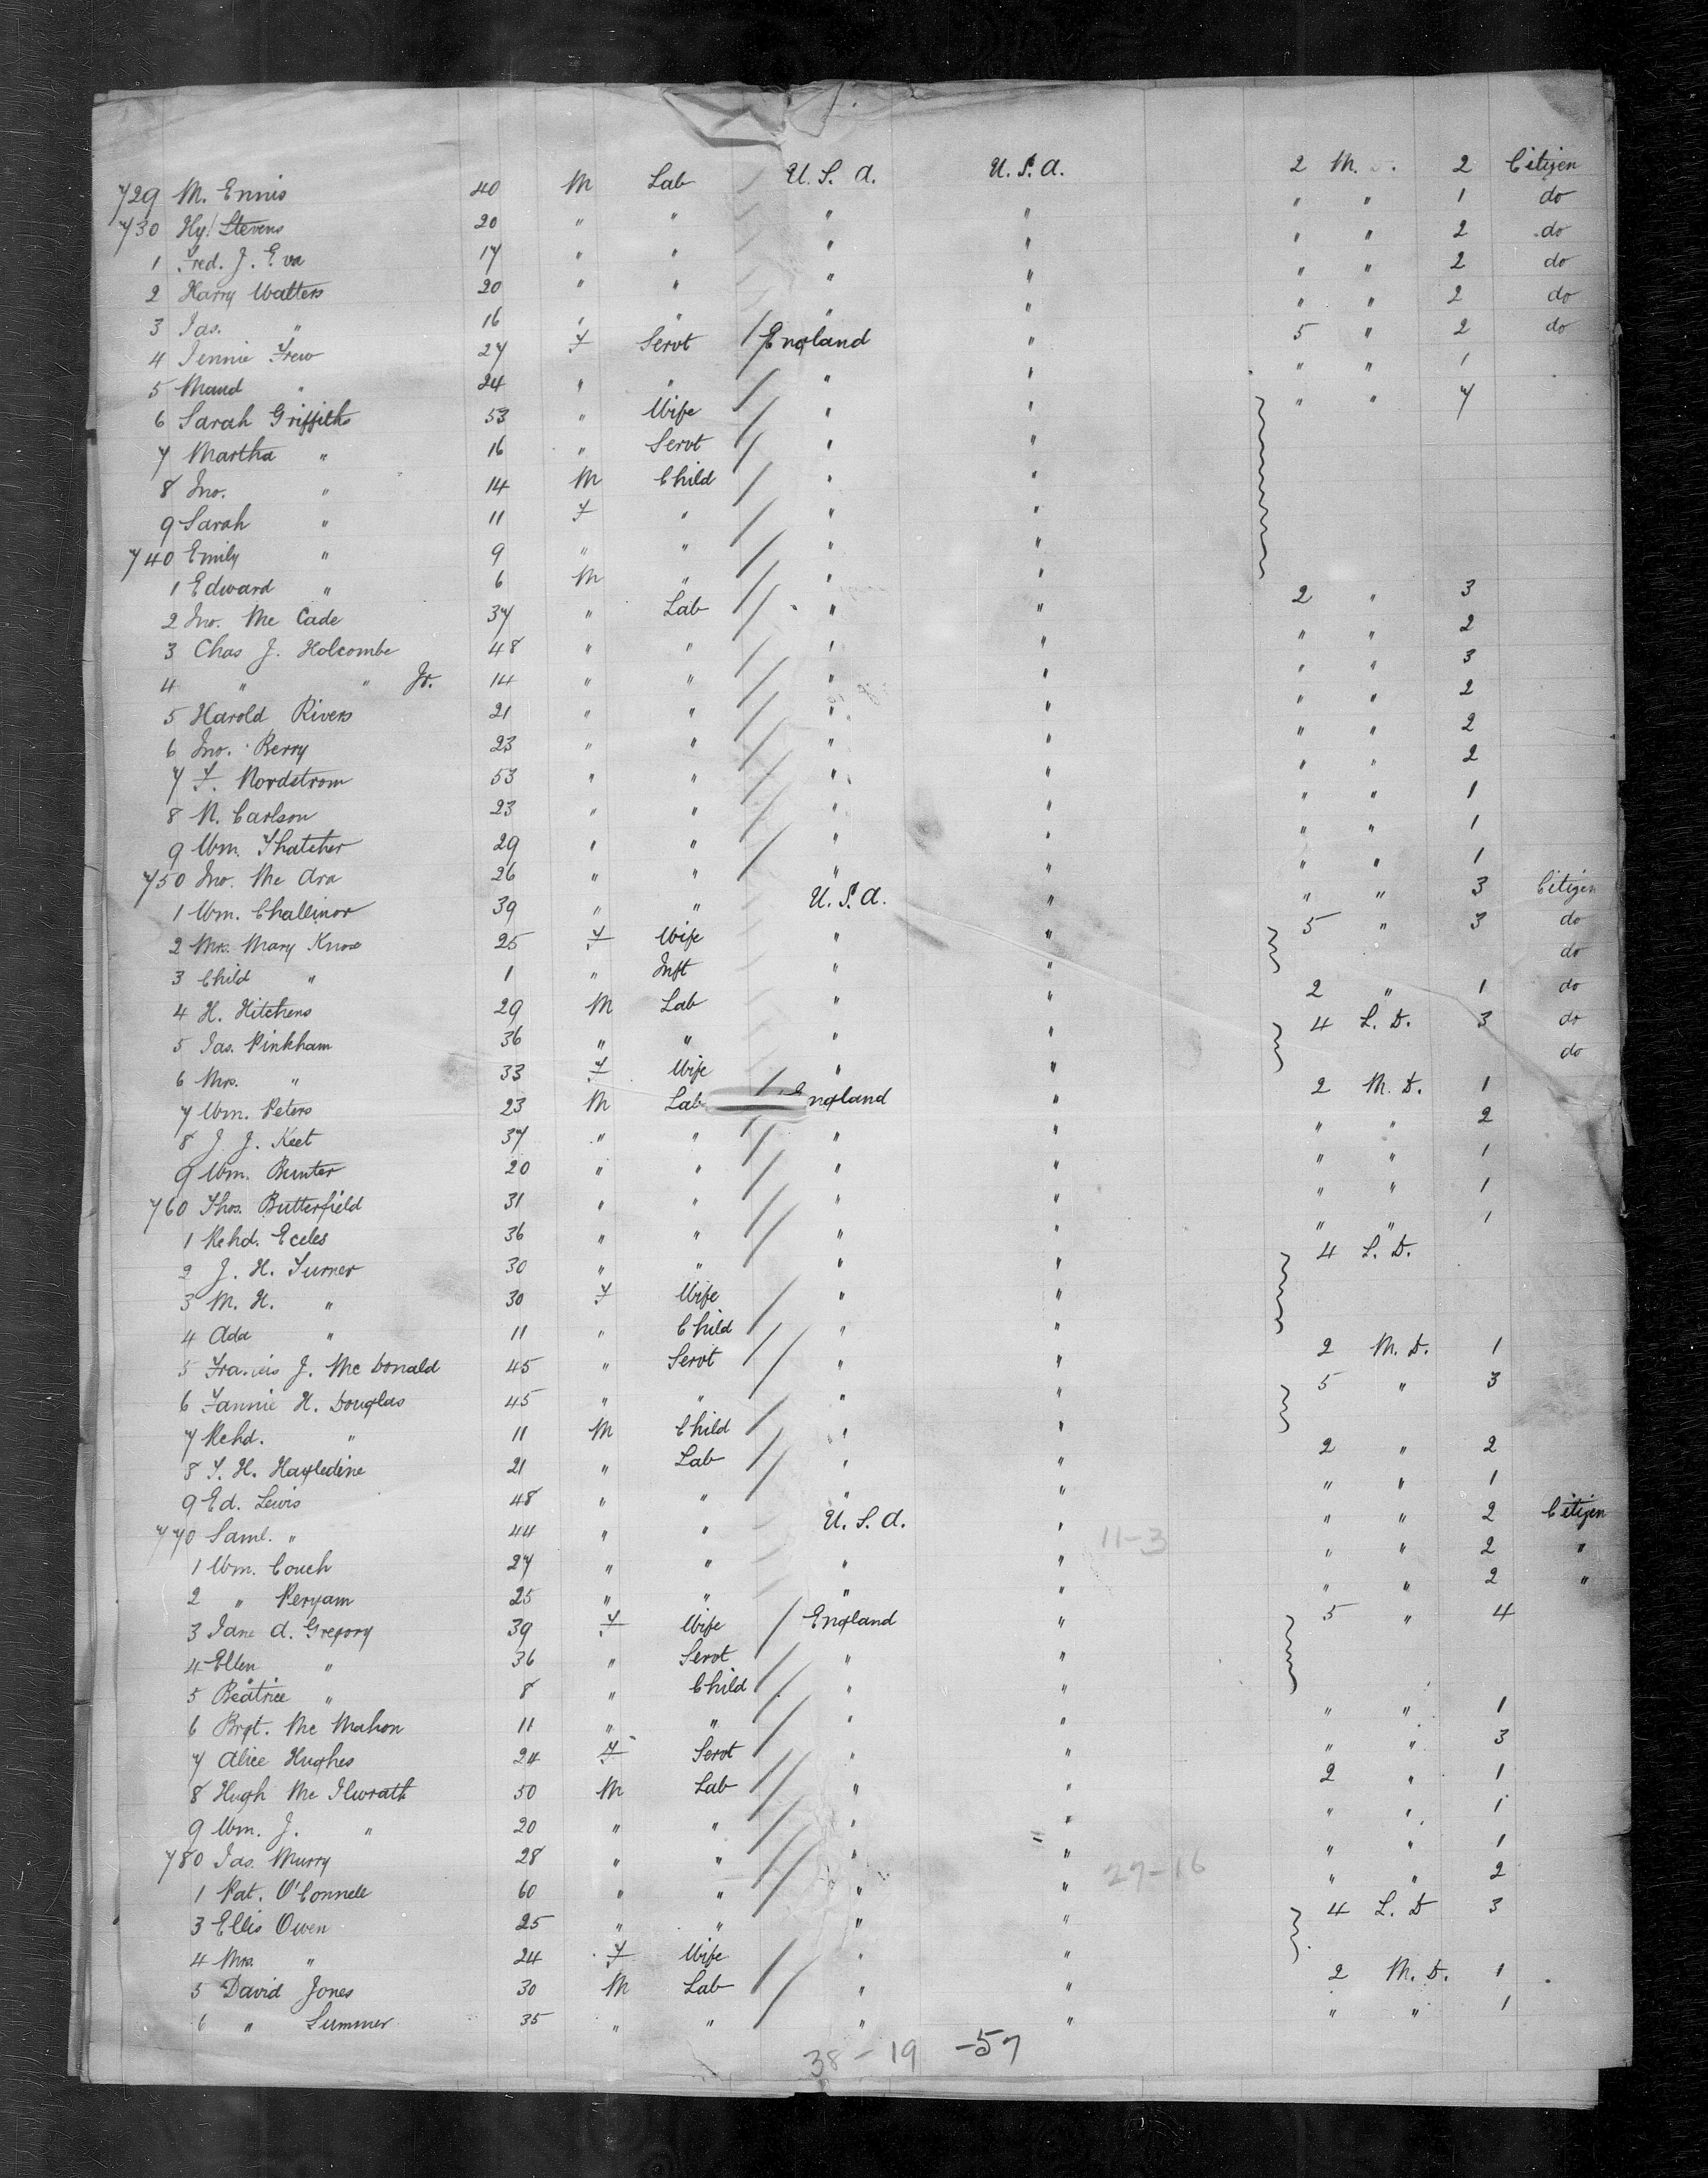 729 M. Ennis 40 M Lab U. S. A. U. S. A. 2 M. D. 2 Citizen
730 Hy. Stevens 20 " " " " " " 1 do
1 Fred. J. Eva 17 " " " " " " 2 do
2 Harry Watters 20 " " " " " " 2 do
3 Jas. " 16 " " " " " " 2 do
4 Jennie Frew 27 F Servt / England " 5 " 2 do
5 Maud " 24 " " / " " " " 1
6 Sarah Griffiths 53 " Wife / " " " " 7
7 Martha " 16 " Servt / " "
8 Jno. " 14 M Child / " "
9 Sarah " 11 F " / " "
740 Emily " 9 " " / " "
1 Edward " 6 M " / " "
2 Jno. Mc Cade 37 " Lab / " " 2 " 3
3 Chas J. Holcombe 48 " " / " " " " 2
4 " " Jr. 14 " " / " " " " 3
5 Harold Rivers 21 " " / " " " " 2
6 Jno. Berry 23 " " / " " " " 2
7 F. Nordstrom 53 " " / " " " " 2
8 N. Carlson 23 " " / " " " " 1
9 Wm. Thatcher 29 " " / " " " " 1
750 Jno. Mc Ara 26 " " / " " " " 1
1 Wm. Challinor 39 " " U. S. A. " " " 3 Citizen
2 Mrs. Mary Knox 25 F Wife " " 5 " 3 do
3 Child " 1 " Inft " " do
4 H. Hitchens 29 M Lab " " 2 " 1 do
5 Jas. Pinkham 36 " " " " 4 L. D. 3 do
6 Mrs. " 33 F Wife " " do
7 Wm. Peters 23 M Lab / England " 2 M. D. 1
8 J. J. Keet 37 " " / " " " " 2
9 Wm. Bunter 20 " " / " " " " 1
760 Thos. Butterfield 31 " " / " " " " 1
1 Rchd. Eccles 36 " " / " " " " 1
2 J. H. Turner 30 " " / " " 4 L. D.
3 M. H. " 30 F Wife / " "
4 Ada " 11 " Child / " "
5 Francis J. Mc Donald 45 " Servt / " " 2 M. D. 1
6 Fannie H. Douglas 45 " " / " " 5 " 3
7 Rchd. " 11 M Child / " "
8 T. H. Hazledine 21 " Lab / " " 2 " 2
9 Ed. Lewis 48 " " / " " " " 1
770 Saml. " 44 " " U. S. A. " 11-3 " " 2 Citizen
1 Wm. Couch 27 " " " " " " 2 "
2 " Peryam 25 " " " " " " 2 "
3 Jane A. Gregory 39 F Wife / England " 5 " 4
4 Ellen " 36 " Servt / " "
5 Beatrice " 8 " Child / " "
6 Brgt. Mc Mahon 11 " " / " " " " 1
7 Alice Hughes 24 F Servt / " " " " 3
8 Hugh Mc Ilwrath 50 M Lab / " " 2 " 1
9 Wm. J. " 20 " " / " " " " 1
780 Jas. Murry 28 " " / " " " " 1
1 Pat. O'Connell 60 " " / " " 27-16 " " 2
3 Ellis Owen 25 " " " " 4 L. D 3
4 Mrs. " 24 F Wife / " "
5 David Jones 30 M Lab / " " 2 M. D. 1
6 " Summer 35 " " / " " " " 1
38 - 19 - 57